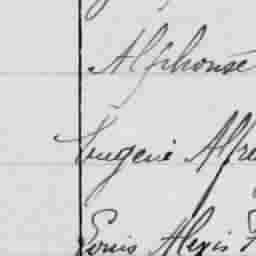 Alphonse
Eugène Alfre
Louis Alexis